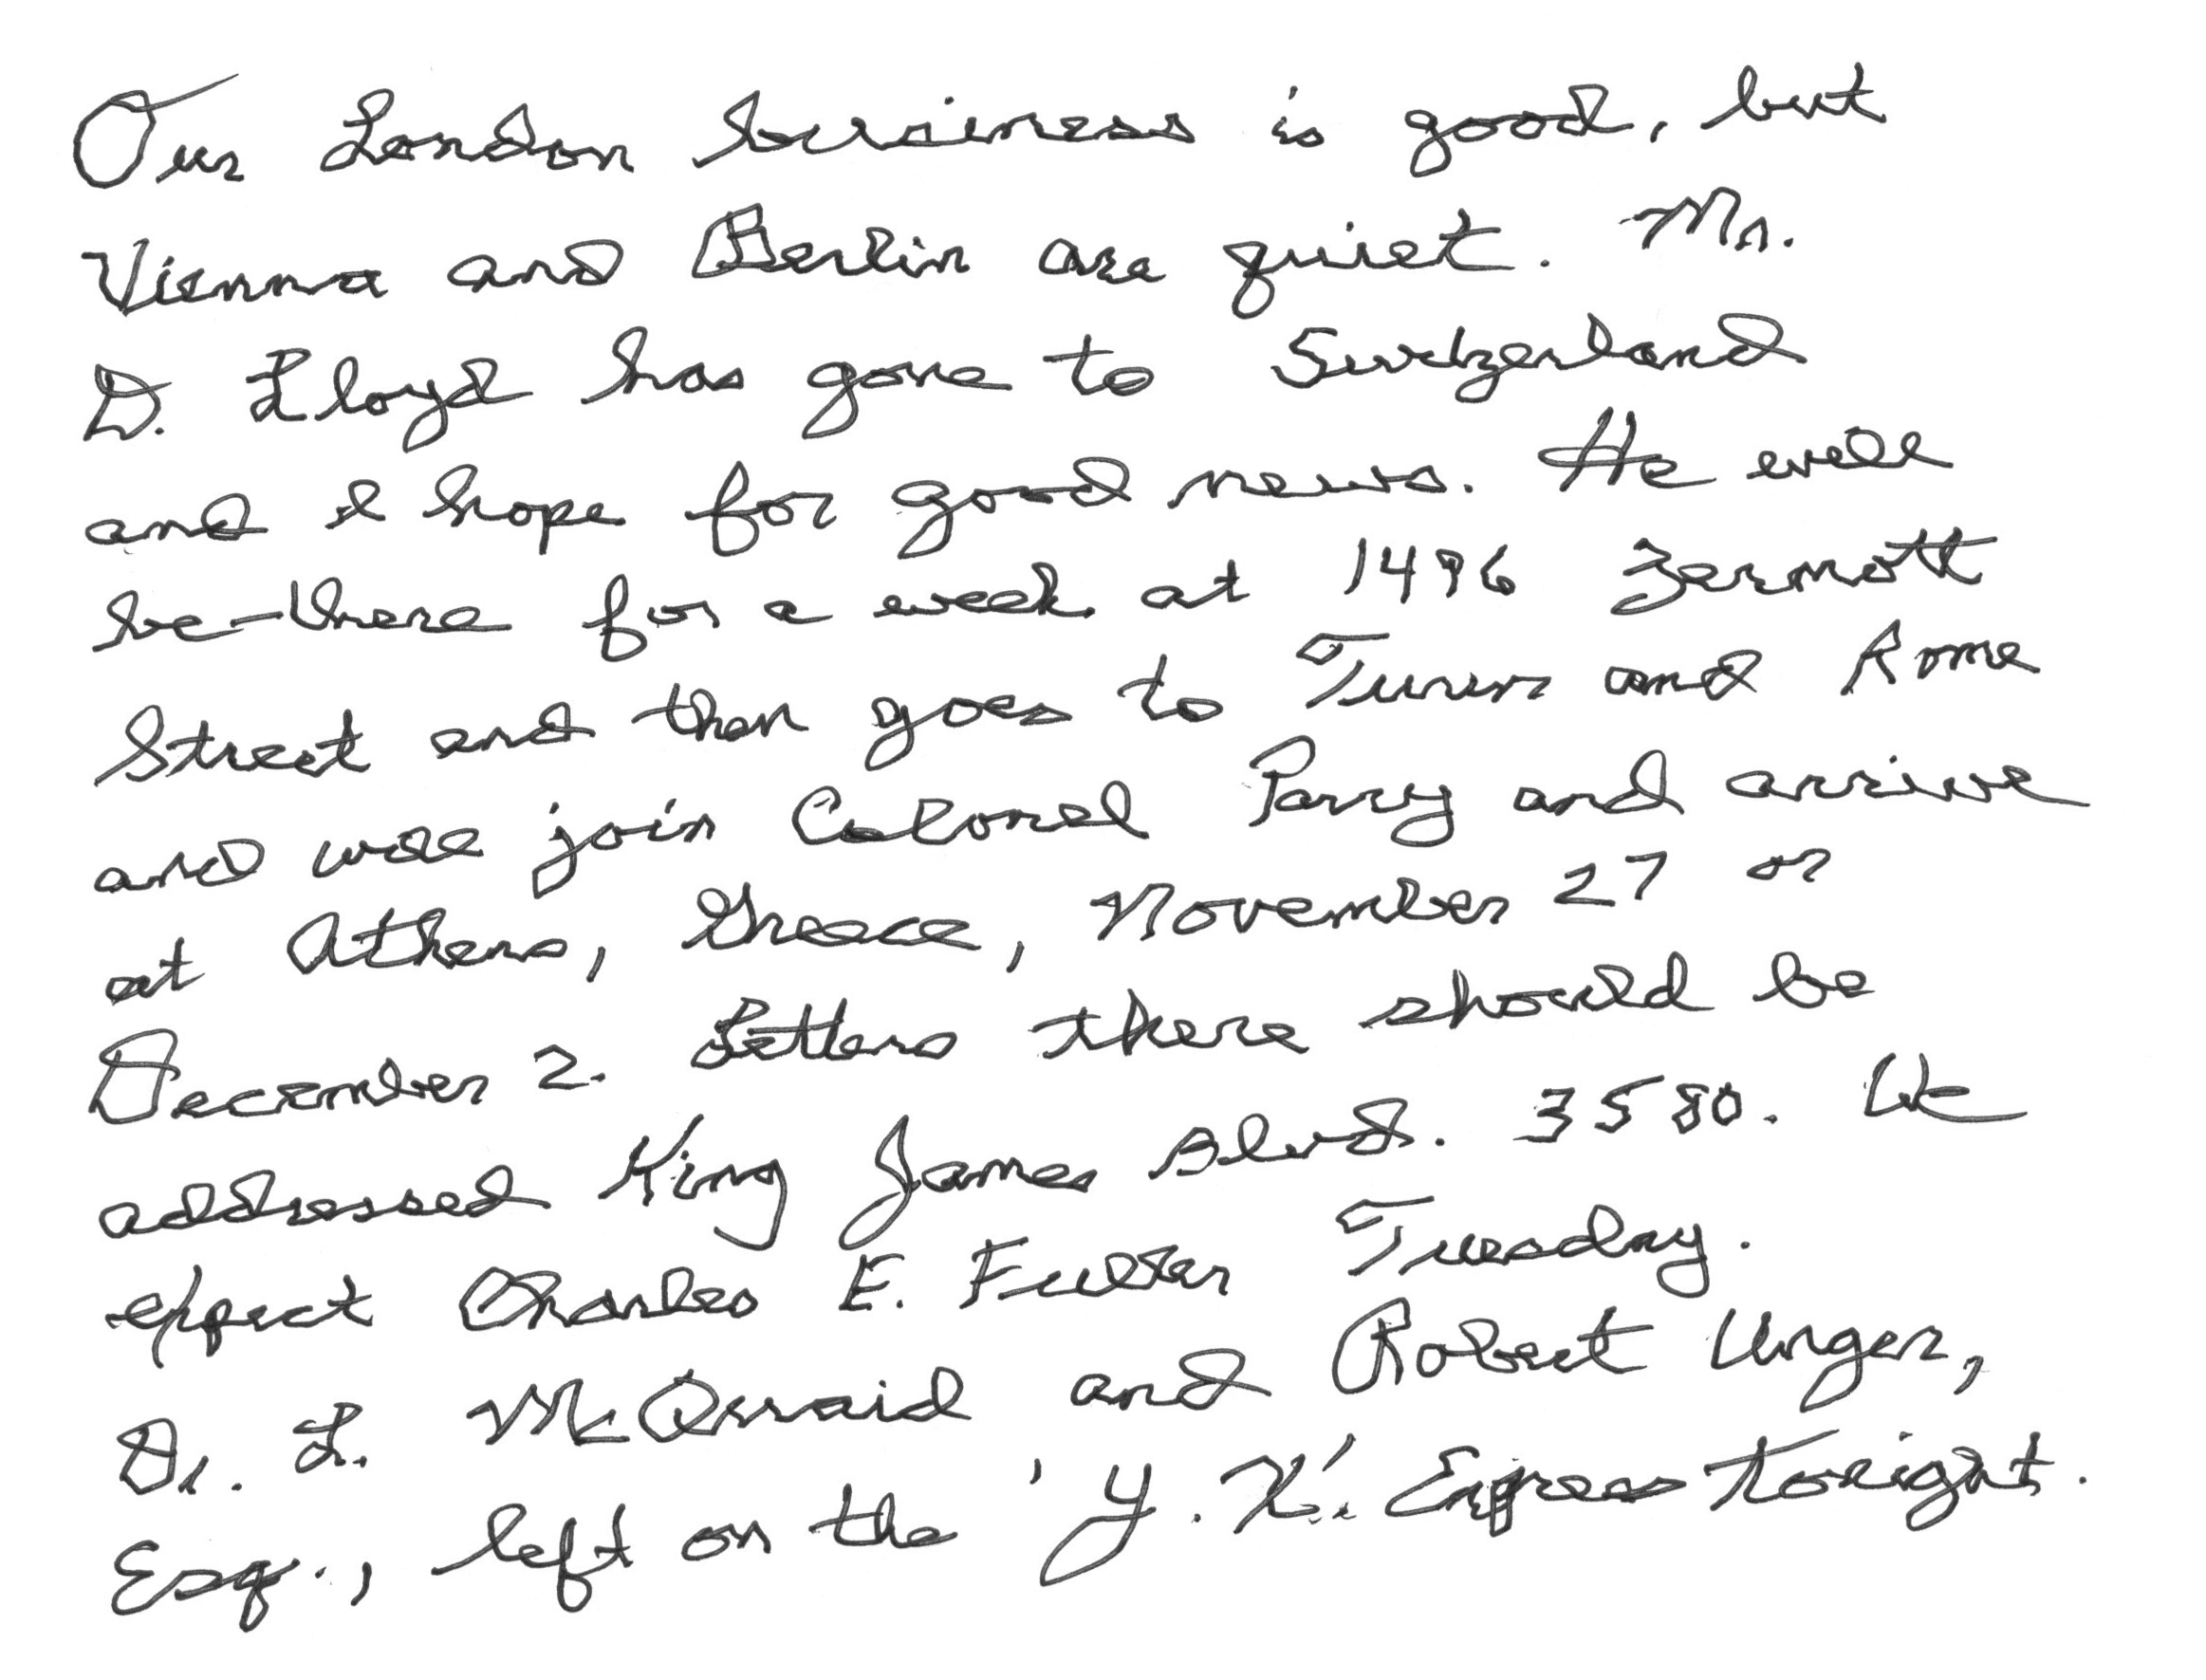 Our London business is good, but
Vienna and Berlin are quiet. Mr.
D. Lloyd has gone to Switzerland
and I hope for good news. He will
be there for a week at 1496 Zermott
Street and then goes to Turin and Rome
and will join Colonel Parry and arrive
at Athens, Greece, November 27 or
December 2. Letters there should be
addressed King James Blvd. 3580. We
expect Charles E. Fuller Tuesday.
Dr. L. McQuaid and Robert Unger,
Esq., left on the 'Y. X.' Express tonight.